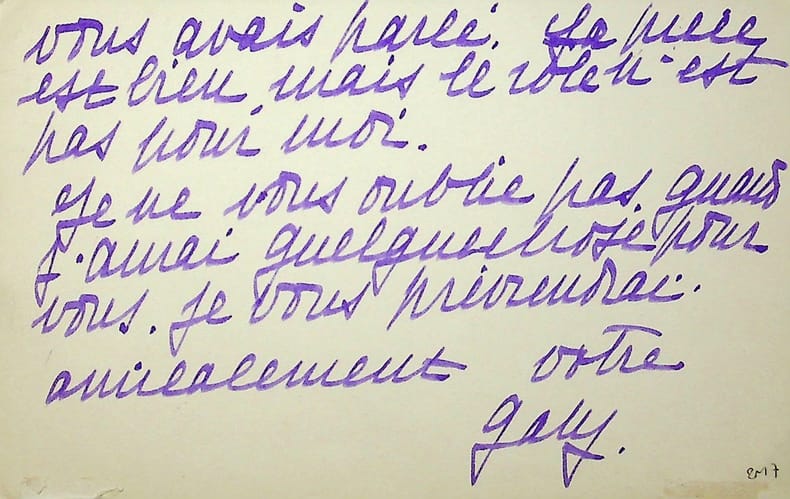 vous avais parlé. La piece
est bien mais le rôle n'est
pas pour moi.
Je ne vous oublie pas. quand
j'aurai quelque chose pour
vous. je vous préviendrai.
amicalement votre
gaby.